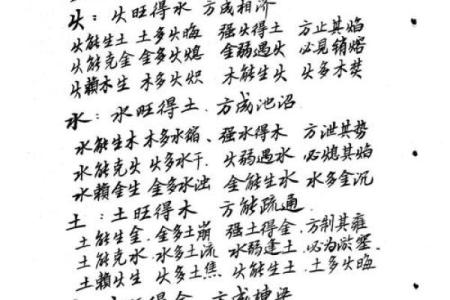 火：火旺得水 方成相济
火能生土 土多火晦 强火得土 方止其焰
火能克金 金多火熄 金弱遇火 必見销熔
火賴木生 木多火炽 木能生火 火多木焚
水：水旺得土．方成池沼
水能生木 木多水缩、强水得木 方泄其势
水能克火 火多水干．火弱遇水 必熄其焰
水賴金生 金多水浊 金能生水 水多金沉
土：土旺得木 方能疏通
土能生金．金多土崩 强土得金．方制其壅
土能克水．水多土流 水弱逢土．必为淤塞．
土賴火生 火多土焦 火能生土．土多火晦